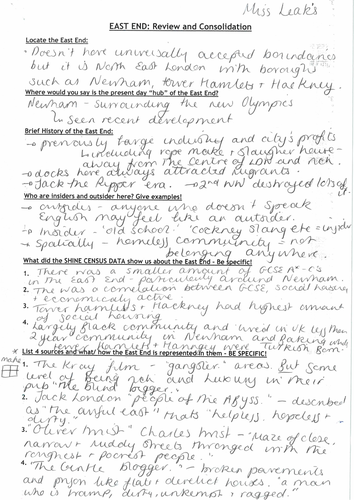 Miss Leak's
EAST END: Review and Consolidation
Locate the East End:
• Doesn't have universally accepted boundaries
but it is North East London with boroughs
such as Newham, tower Hamlets + Hackney.
Where would you say is the present day "hub" of the East End?
Newham - surrounding the new Olympics
↳ Seen recent development
Brief History of the East End:
→ previously large industry and city's profits
↳ including rope make + slaughter house -
away from the centre of LDN and rich.
→ docks here always attracted migrants.
→ Jack the Ripper era. → 2nd WW destroyed lots of it.
Who are insiders and outsider here? Give examples!
→ outsides - anyone who doesn't speak
English may feel like an outsider.
→ Insider - 'old school' 'Cockney slang etc = insider
→ Spatially - homeless community = not
belonging anywhere.
What did the SHINE CENSUS DATA show us about the East End - Be specific!
1. There was a smaller amount of GCSE A*-C's
in the East End particularly around Newham.
2. The was a correlation between GCSE, social housing
+ economically active.
3. Tower hamlets + Hackney had highest amount
of social housing
4. Largely Black community and lived in UK less than
2 year community in Newham and Barking while
Tower Hamlets + were Turkish Born.
List 4 sources and what/ how the East End is represented in them - BE SPECIFIC!
1. The Kray film - "gangster" areas. But some
sort of being rich and luxury in their
pub "the blind bigger.
2. Jack London "people of the Abyss." - described
as "the awful east" thats "helpless, hopeless +
dirty."
3. "Oliver twist" Charles twist - "Maze of close,
narrow + muddy streets thronged with the
roughest + poorest people."
4. "The Gentle blogger." - broken pavements
and prison like flats + derelict houses. 'a man
who is tramp, dirty, unkempt + ragged."